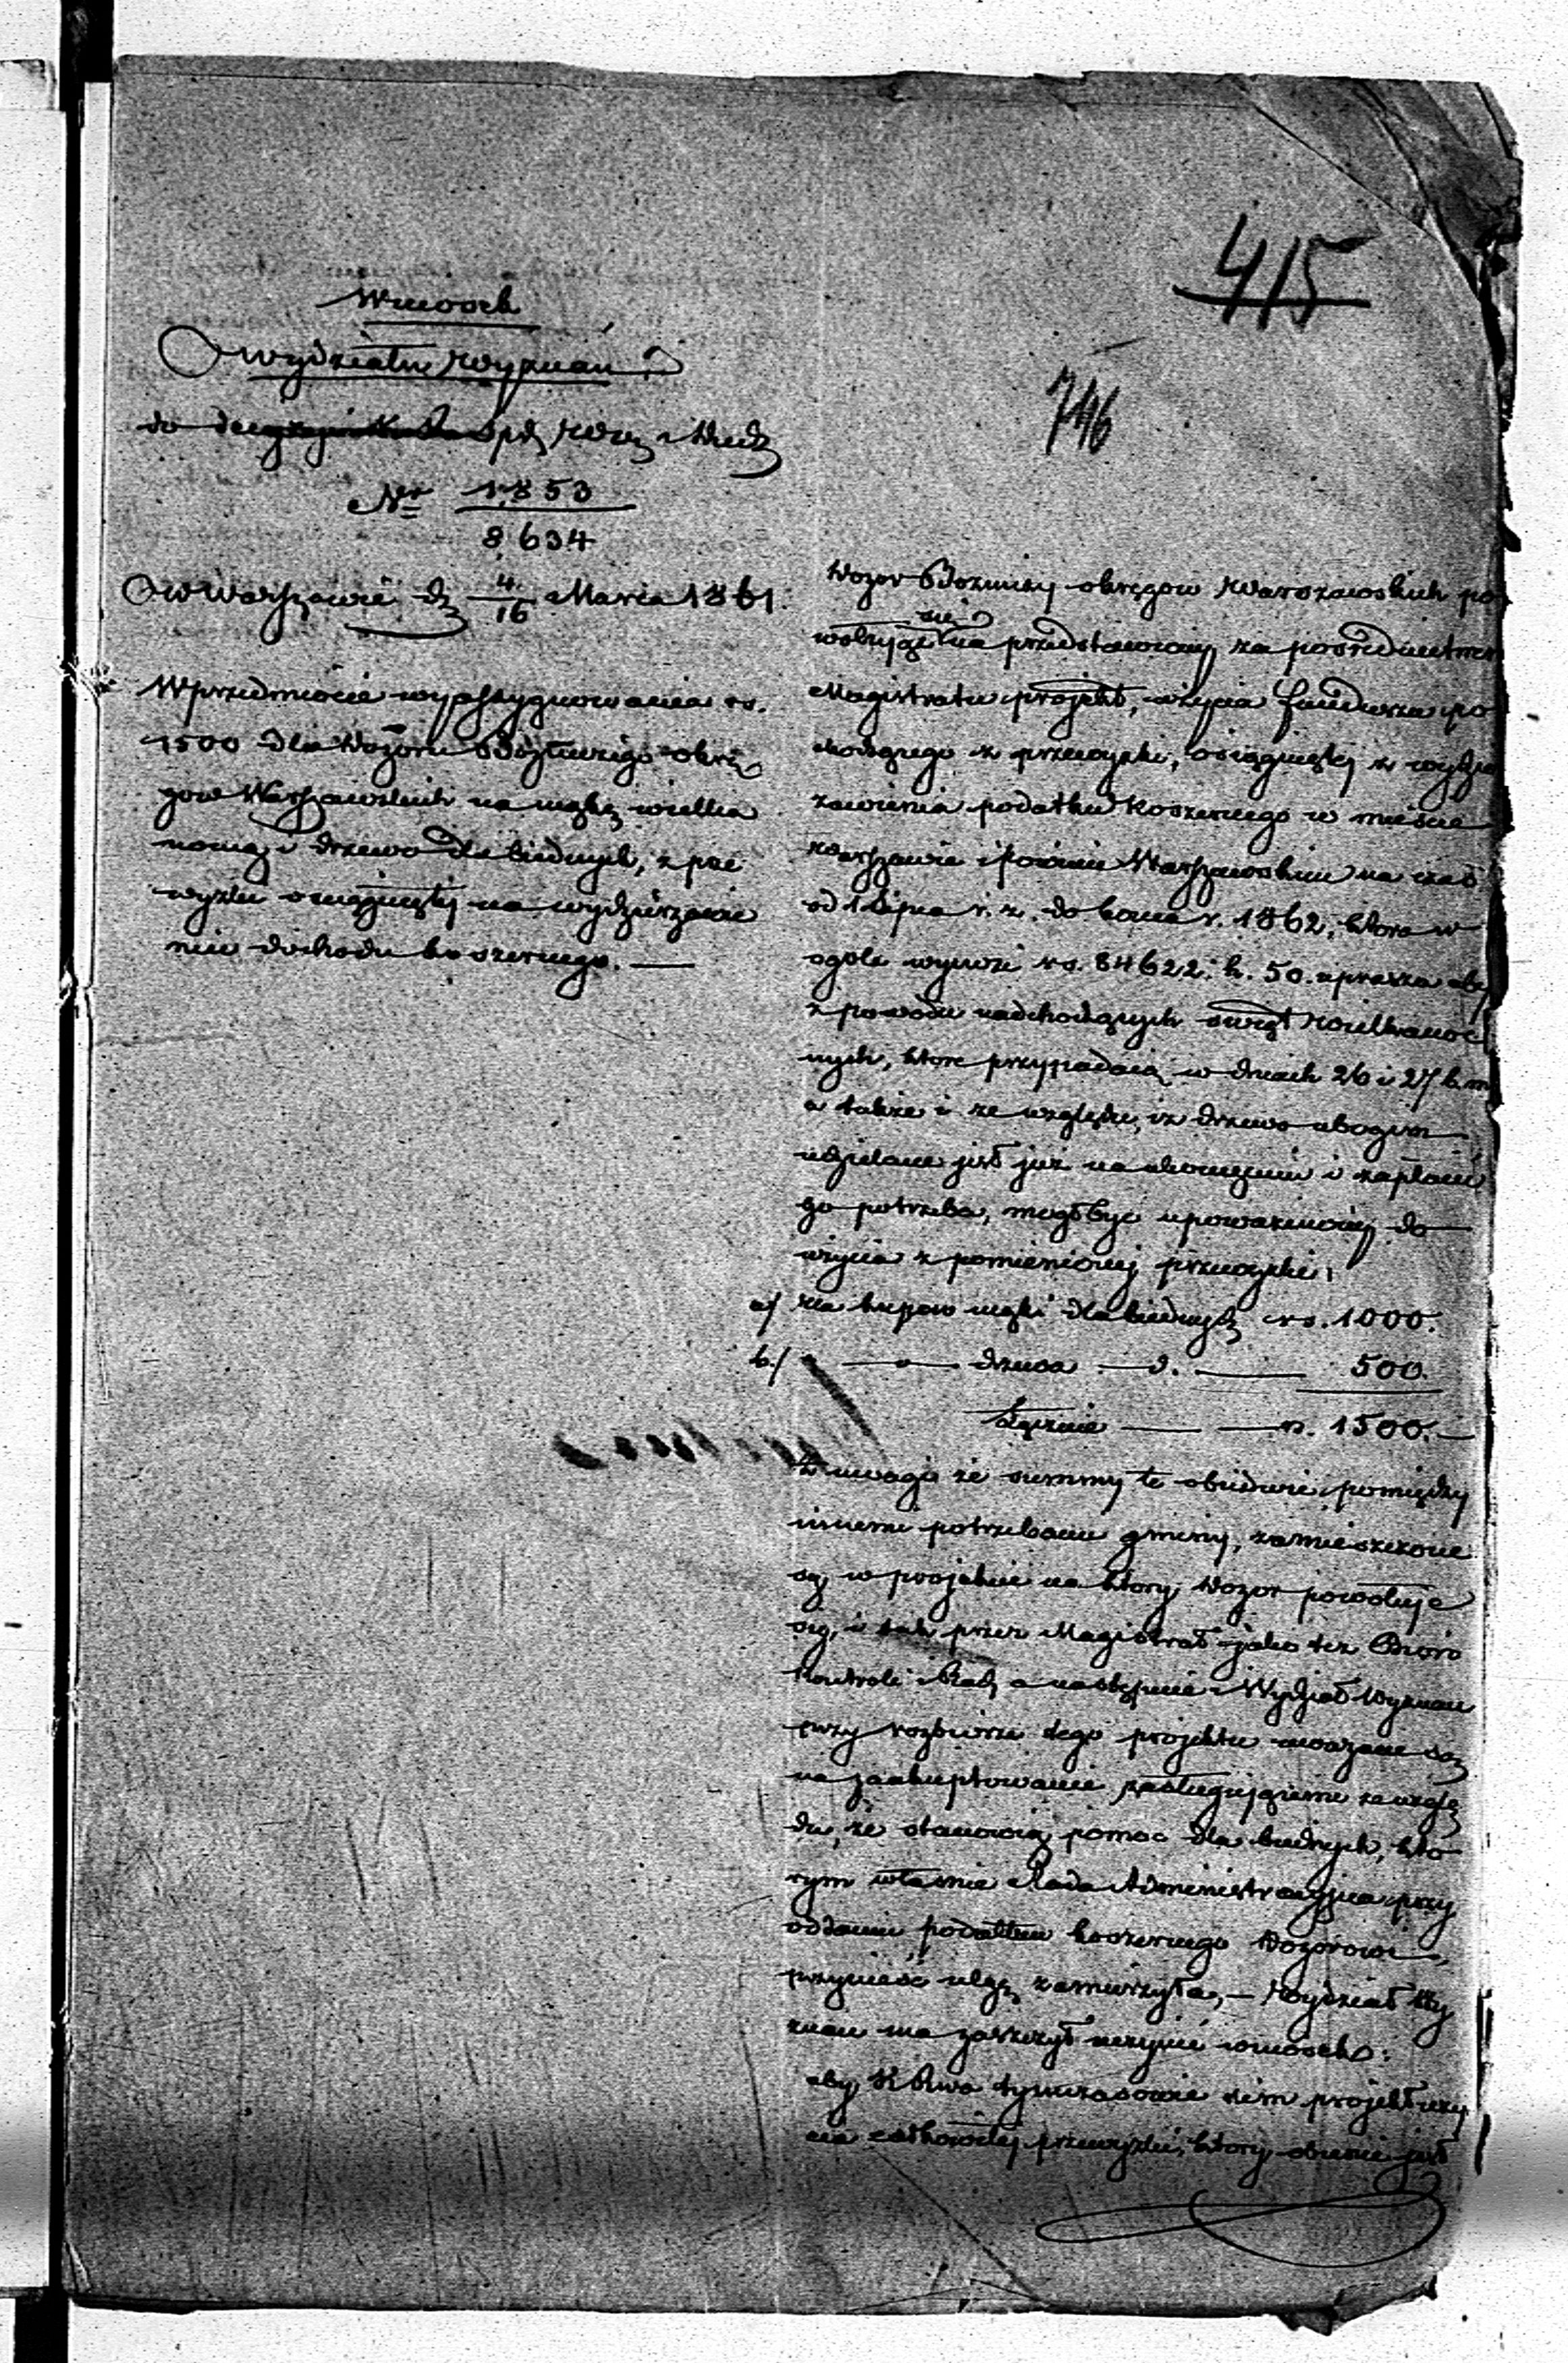 415
746
Wniosek
Wydziału Wyznań
do Spr. Wew. i Duch.
Nr 1,853
8,634
w Warszawie d. 4/16 Marca 1861.
W przedmiocie wyassygnowania rs.
1500 dla Dozoru Bóżniczego okrę
gów Warszawskich na mąkę wielka
nocną i drzewo dla biednych, z prze
wyżki osiągniętej na wydzierżawie
niu dochodu koszernego. —
Dozor Bóżniczy okręgów Warszawskich po
wołując się na przedstawiony za pośrednictwem
Magistratu projekt, użycia funduszu po
chodzącego z przewyżki, osiągniętej z wydzier
żawienia podatku koszernego w mieście
Warszawie i Powiecie Warszawskim na czas
od 1 Lipca r. z. do końca r. 1862, która w
ogóle wynosi rs. 84622. k. 50. uprasza aby
z powodu nadchodzących świąt Wielkanoc
nych, które przypadają w dniach 26 i 27 b. m.
a także i ze względu, iż drzewo ubogim
udzielane jest już na ukończeniu i zapłacić
go potrzeba, mógł być upoważniony do
użycia z pomienionej przewyżki:
a/ na kupno mąki dla biednych rs. 1000.
b./ — „ — drzewa — d. — 500.
Łącznie — rs. 1500. —
Z uwagi że summy te obiedwie pomiędzy
innemi potrzebami gminy, zamieszczone
są, w projekcie na który Dozor powołuje
się, i tak przez Magistrat jako też Biuro
Kontroli i Rach. a następnie i Wydział Wyznań
przy rozbiorze tego projektu uważane są
na zaakceptowanie zasługującemi ze wzglę
du, że stanowią pomoc dla biednych, któ
rym właśnie Rada Administracyjna przy
oddaniu podatku koszernego Dozorowi,
przynieść ulgę zamierzyła, — Wydział Wy
znań ma zaszczyt uczynić wniosek:
aby K. Rwa tymczasowie nim projekt uży
cia całkowitej przewyżki, który obecnie jest